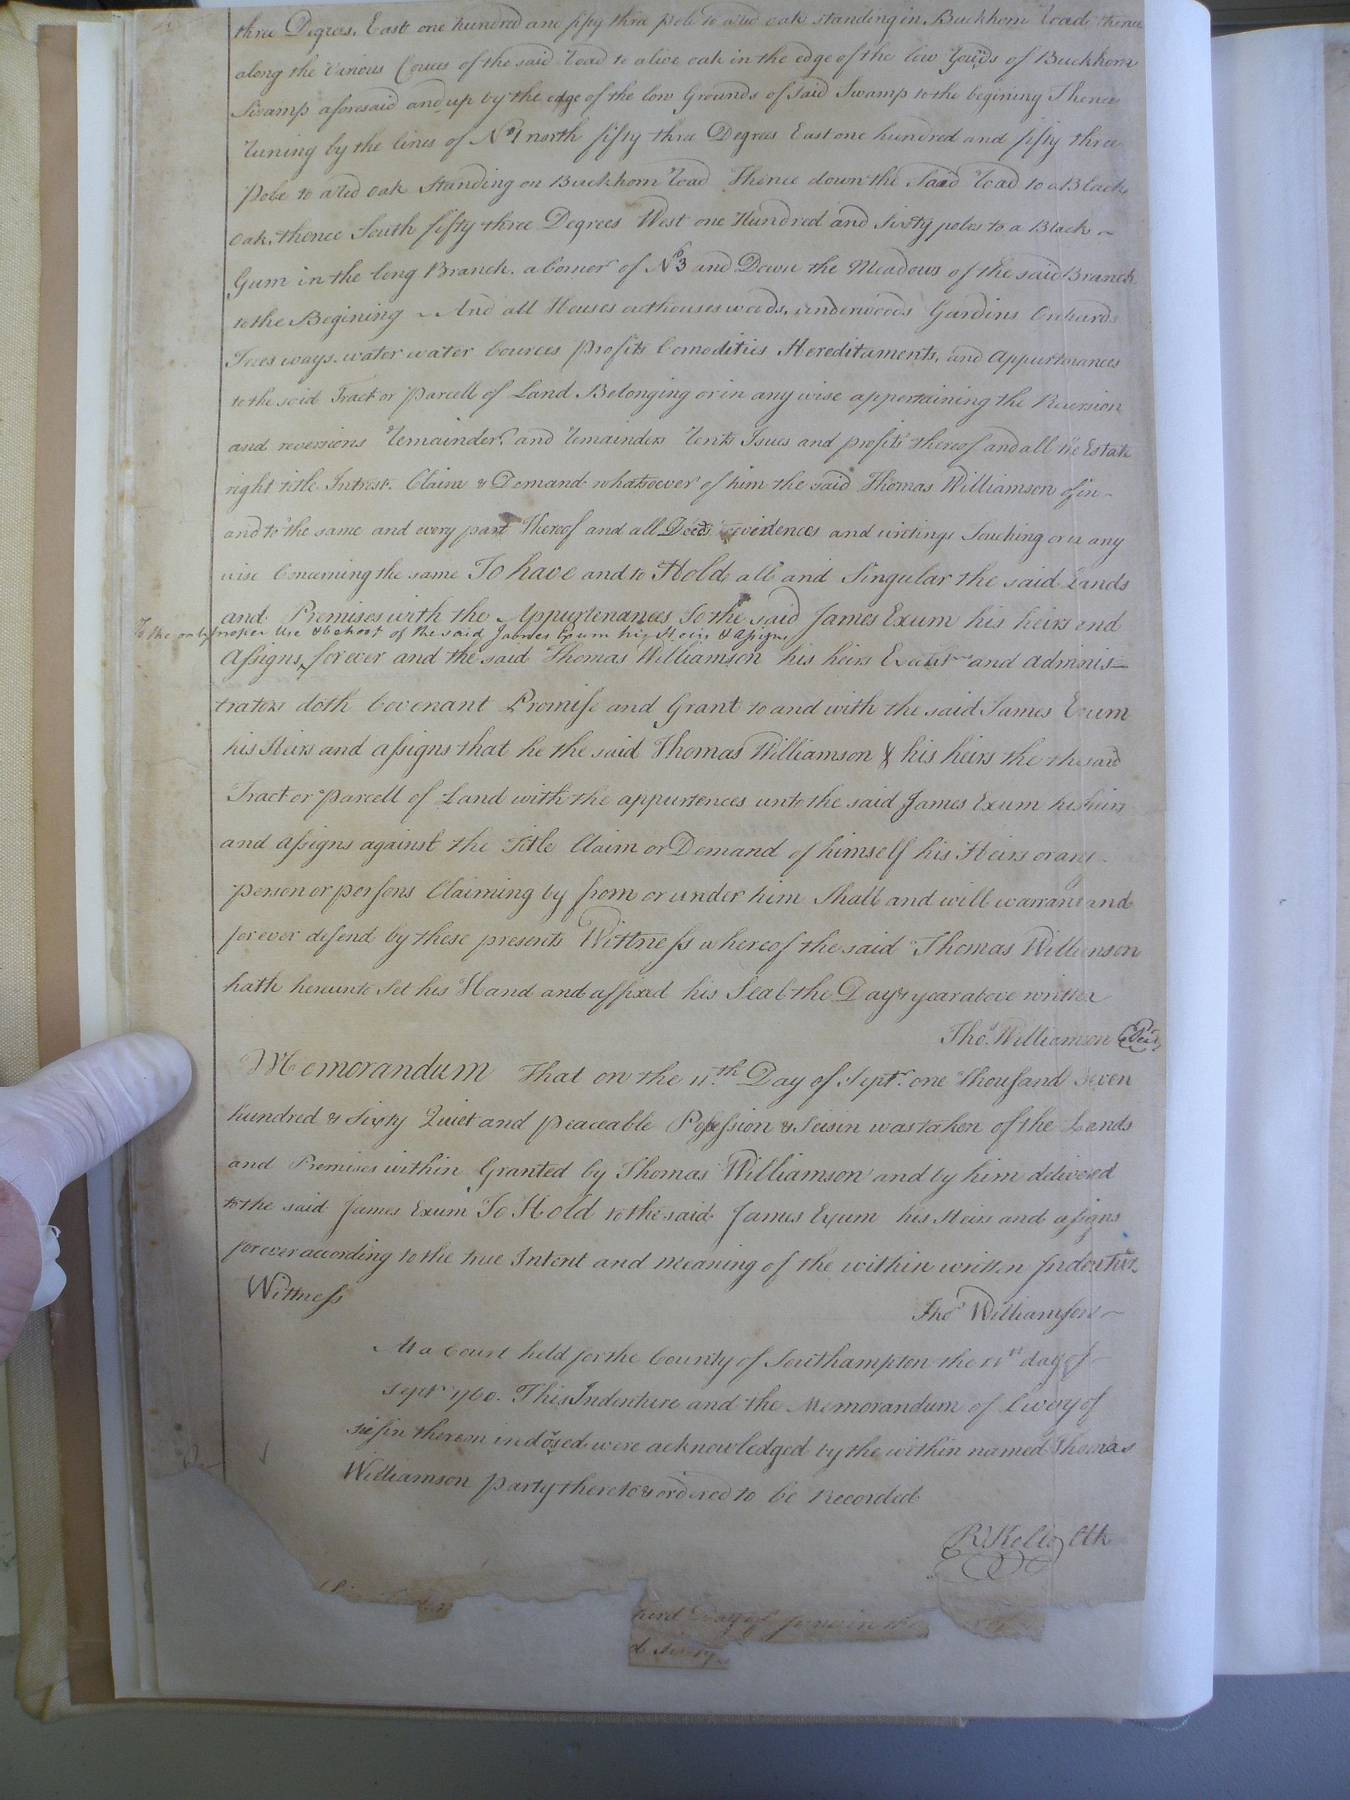 three Degrees. East one hundred and fifty three pole to a red oak standing in Buckhorn road thence
along the various Cources of the said road to a live oak in the edge of the low Gounds of Buckhorn
Swamp aforesaid and up by the edge of the low Grounds of Said Swamp to the begining Thence
runing by the lines of No 1 north fifty three Degrees East one hundred and fifty three
pole to a red oak Standing on Buckhorn road Thence down the Said road to a Black
oak, thence South fifty three Degrees West one Hundred and Sixty poles to a Black
Gum in the long Branch. a Corner of No 3 and Down the Meadows of the said Branch
to the Begining And all Houses outhouses woods, underwoods Gardins Orchards
Trees ways water water Cources profits Comodities Hereditaments, and Appurtenances
to the said Tract or Parcell of Land Belonging or in any wise appertaining the Reversion
and reversions remainder and remainders rents Isues and profits thereof and all the Estate
right title Intrest. Claim & Demand whatsoever of him the said Thomas Williamson of in
and to the same and every part thereof and all Deeds evidences and writings Touching or in any
wise Concerning the same To have and to Hold all and Singular the said Lands
and Premises with the Appurtenances To the said James Exum his heirs and
To the only proper Use & behoof of the said James Exum his Heirs & Assigns
Assigns forever and the said Thomas Williamson his heirs Executrs and adminis-
trators doth Covenant Promise and Grant to and with the said James Exum
his Heirs and assigns that he the said Thomas Williamson & his heirs the the said
Tract or Parcell of Land with the appurtences unto the said James Exum his heirs
and assigns against the Title Claim or Demand of himself his Heirs or any
person or persons Claiming by from or under him Shall and will warrant and
forever defend by these presents Wittness whereof the said Thomas Williamson
hath hereunto Set his Hand and affixed his Seal the Day & year above written
Thos. Williamson
Memorandum That on the 11th Day of Septr. one Thousand Seven
hundred & Sixty Quiet and peaceable Possession & Seisin was taken of the Lands
and Premises within Granted by Thomas Williamson and by him delivered
to the said James Exum To Hold to the said James Exum his Heirs and assigns
forever according to the true Intent and meaning of the within written Indenture
Wittness
Thos Williamson
At a Court held for the County of Southampton the 11th day of
Septr 1760. This Indenture and the Memorandum of Livery of
Seisin thereon indorsed were acknowledged by the within named Thomas
Williamson party thereto & ordered to be Recorded
R Kello Clk
Day of